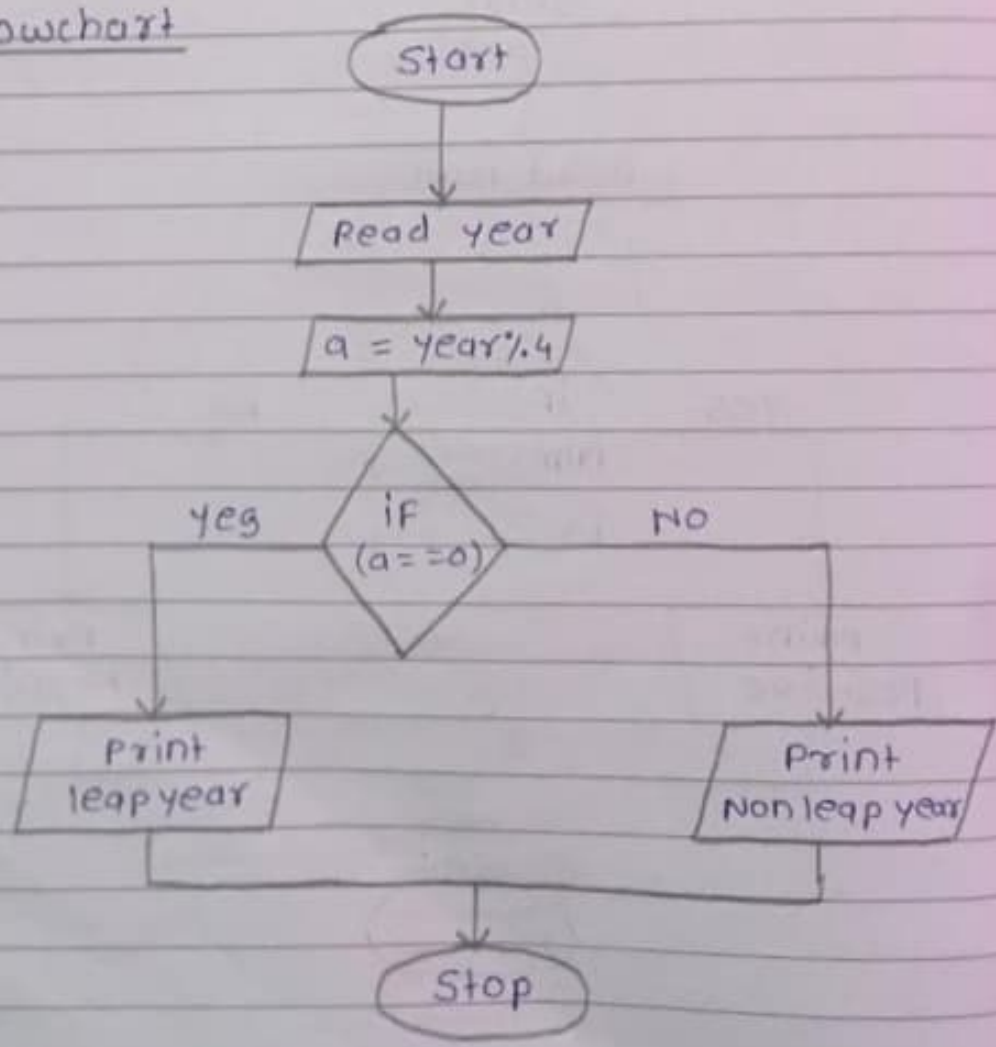 owchart
Start
Read year
a = year%4
if
(a==0)
yes
NO
Print
leap year
Print
Non leap year
Stop